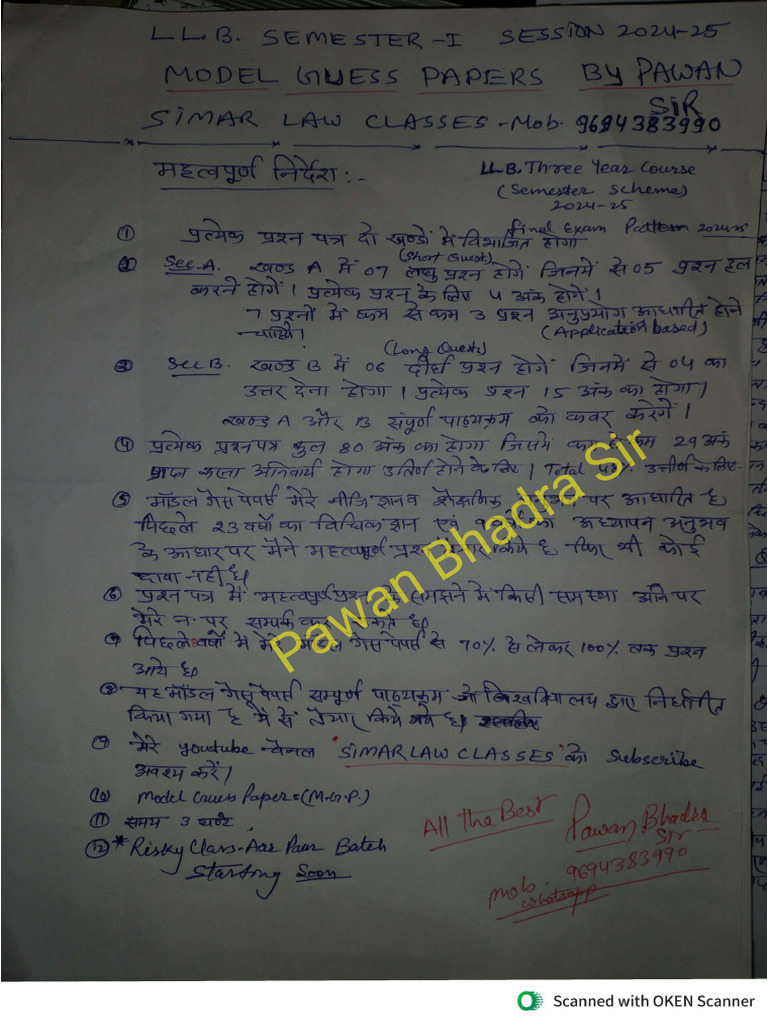 LL.B. SEMESTER-I SESSION 2024-25
MODEL GUESS PAPERS BY PAWAN
SIR
SIMAR LAW CLASSES-Mob. 9694383990
महत्वपूर्ण निर्देश:-
LL.B. Three Year Course
(Semester Scheme)
2024-25
Final Exam Pattern 2024-25
① प्रत्येक प्रश्न पत्र दो खण्डों में विभाजित होगा
(Short Quest)
② Sec.A. खण्ड A में 07 लघु प्रश्न होगें जिनमें से 05 प्रश्न हल
करने होगें। प्रत्येक प्रश्न के लिए 4 अंक होगें।
7 प्रश्नों में कम से कम 3 प्रश्न अनुप्रयोग आधारित होने
चाहिये। (Application based)
(Long Quest)
③ Sec B. खण्ड B में 06 दीर्घ प्रश्न होगें जिनमें से 04 का
उत्तर देना होगा। प्रत्येक प्रश्न 15 अंक का होगा।
खण्ड A और B संपूर्ण पाठ्यक्रम को कवर करेगें।
④ प्रत्येक प्रश्नपत्र कुल 80 अंक का होगा जिसमें कम से कम 29 अंक
प्राप्त करना अनिवार्य होगा उतिर्ण होने के लिए। Total उत्तीर्ण के लिए-
⑤ मॉडल गैस पेपर्स मेरे नीजि ज्ञान व शैक्षणिक पर आधारित है
पिछले 23 वर्षो का विधिक ज्ञान एवं का अध्यापन अनुभव
के आधार पर मैने महत्वपूर्ण प्रश्न तैयार किये है फिर भी कोई
दावा नहीं है।
⑥ प्रश्न पत्र में महत्वपूर्ण प्रश्न को समझने में किसी समस्या आने पर
मेरे न. पर सम्पर्क कर सकते है।
⑦ पिछले वर्षो में मेरे मॉडल गैस पेपर्स से 90% से लेकर 100% तक प्रश्न
आये है।
⑧ यह मॉडल गैस पेपर्स सम्पूर्ण पाठ्यक्रम जो विश्वविद्यालय द्वारा निर्धारित
किया गया है में से तैयार किये गये है।
⑨ मेरे youtube चैनल "SIMAR LAW CLASSES" को Subscribe
अवश्य करें।
⑩ Model Guess Paper=(M.G.P.)
⑪ समय 3 घण्टे
⑫ * Risky Class-Aar Paar Batch
Starting Soon
All the Best
Pawan Bhadra
Sir
9694383990
mob.
whatsapp
Pawan Bhadra Sir
Scanned with OKEN Scanner